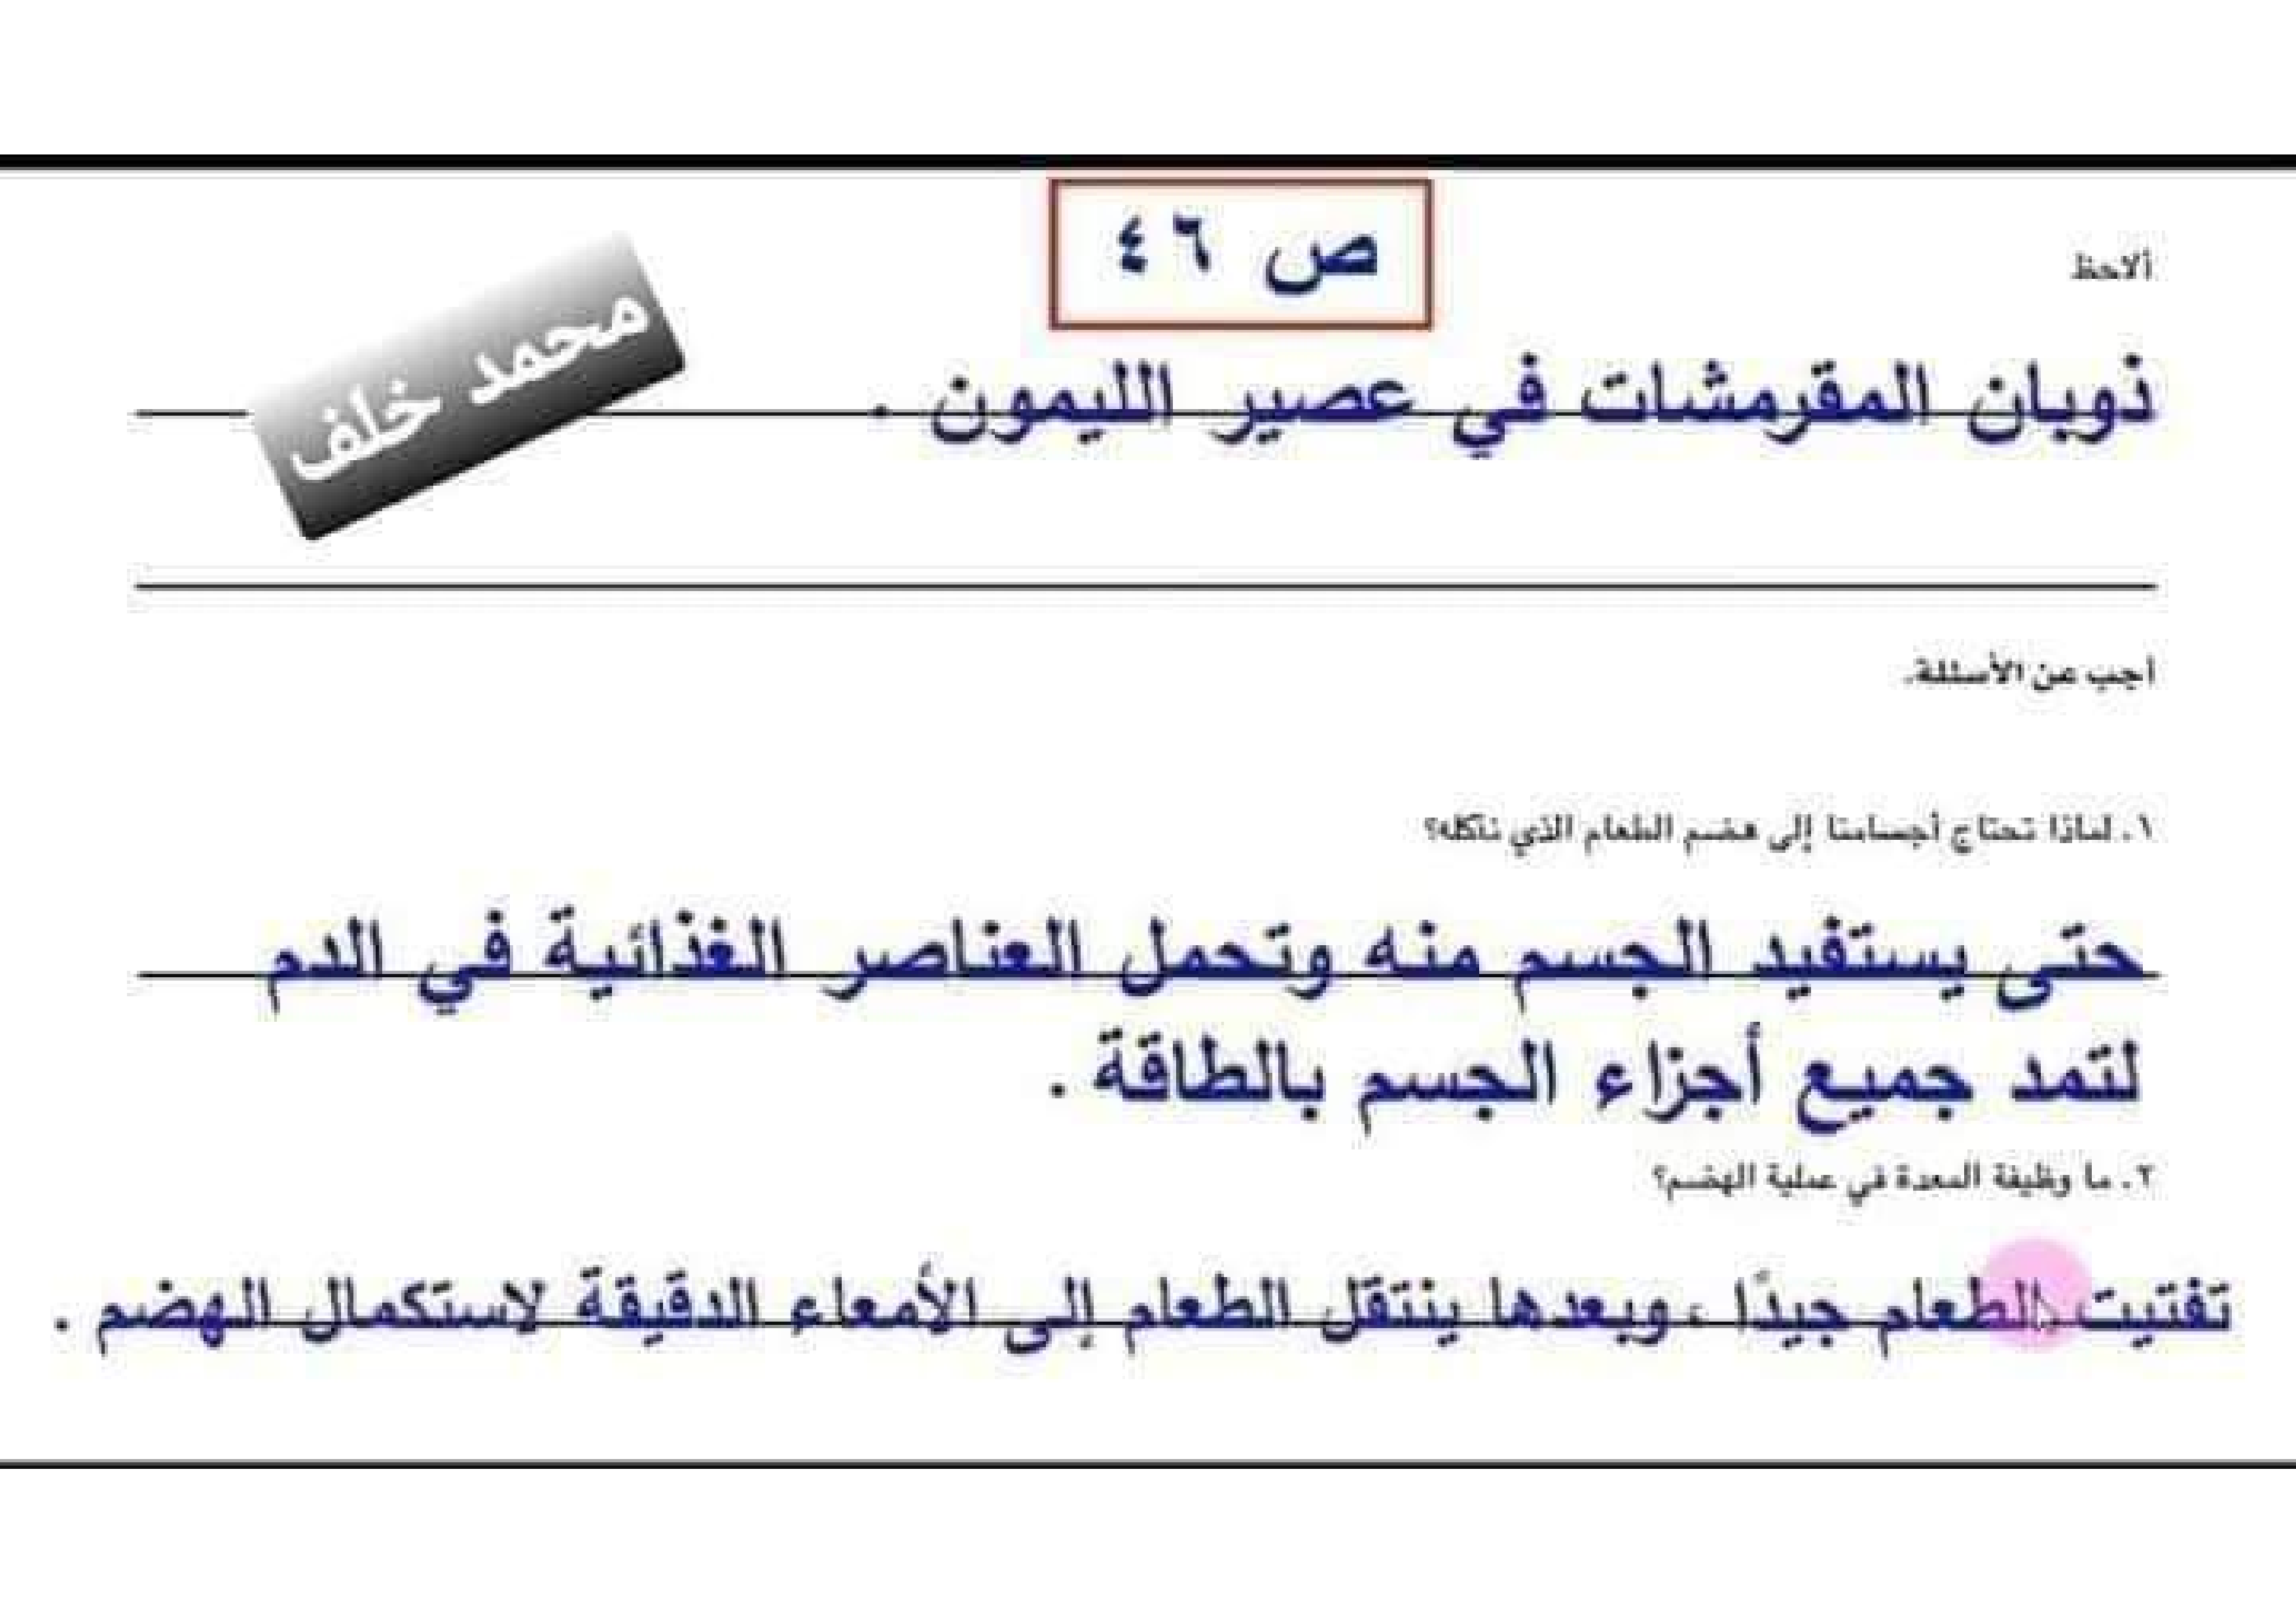 ص ٤٦
ألاحظ
ذوبان المقرمشات في عصير الليمون .
محمد خلف
أجب عن الأسئلة.
١. لماذا تحتاج أجسامنا إلى هضم الطعام الذي نأكله؟
حتى يستفيد الجسم منه وتحمل العناصر الغذائية في الدم
لتمد جميع أجزاء الجسم بالطاقة .
٢. ما وظيفة المعدة في عملية الهضم؟
تفتيت الطعام جيدًا ، وبعدها ينتقل الطعام إلى الأمعاء الدقيقة لاستكمال الهضم .